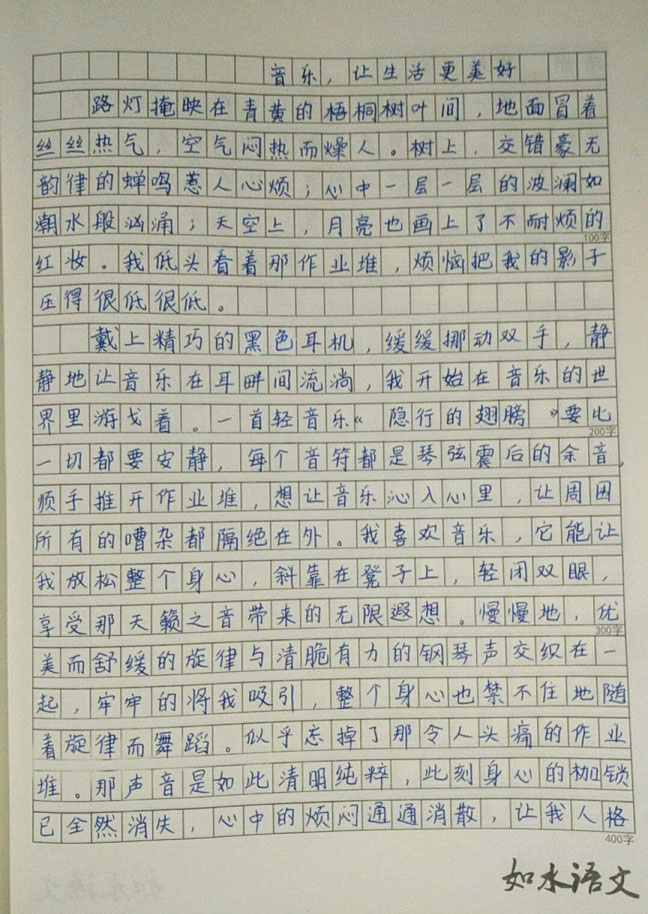 音乐，让生活更美好
路灯掩映在青黄的梧桐树叶间，地面冒着
丝丝热气，空气闷热而燥人。树上，交错毫无
韵律的蝉鸣惹人心烦；心中一层一层的波澜如
潮水段汹涌；天空上，月亮也画上了不耐烦的
100字
红妆。我低头看着那作业堆，烦恼把我的影子
压得很低很低。
戴上精巧的黑色耳机，缓缓挪动双手，静
静地让音乐在耳畔间流淌，我开始在音乐的世
界里游戈着。一首轻音乐《隐行的翅膀》要比
200字
一切都要安静，每个音符都是琴弦震后的余音，
顺手推开作业堆，想让音乐沁入心里，让周围
所有的嘈杂都隔绝在外。我喜欢音乐，它能让
我放松整个身心，斜靠在凳子上，轻闭双眼，
享受那天籁之音带来的无限遐想。慢慢地，优
300字
美而舒缓的旋律与清脆有力的钢琴声交织在一
起，牢牢的将我吸引，整个身心也禁不住地随
着旋律而舞蹈。似乎忘掉了那令人头痛的作业
堆。那声音是如此清明纯粹，此刻身心的枷锁
已全然消失，心中的烦闷通通消散，让我人格
400字
如水语文